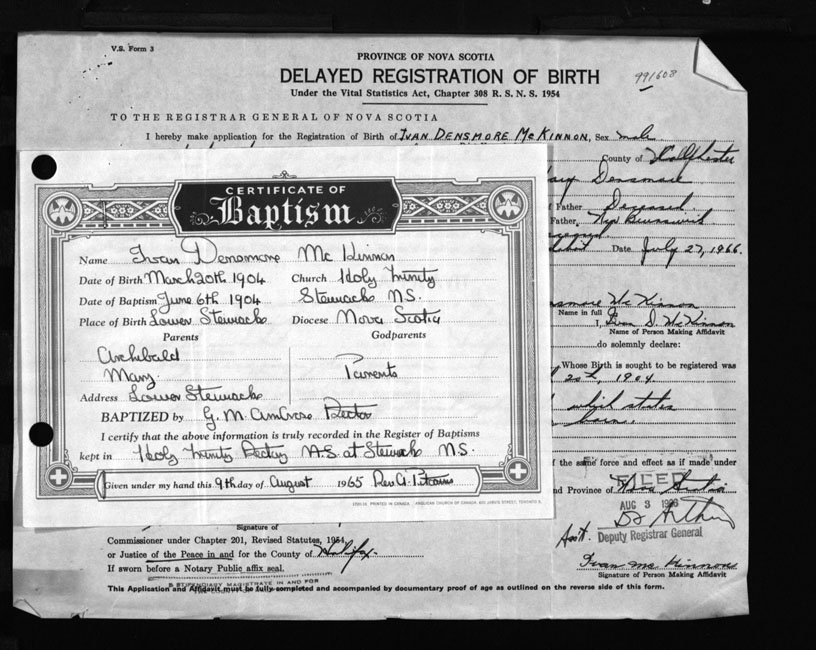 V.S. Form 3
PROVINCE OF NOVA SCOTIA
DELAYED REGISTRATION OF BIRTH
991608
Under the Vital Statistics Act, Chapter 308 R. S. N. S. 1954
TO THE REGISTRAR GENERAL OF NOVA SCOTIA
I hereby make application for the Registration of Birth of IVAN DENSMORE McKINNON, Sex male
County of Colchester
Densmore
Father Deceased
Father, New Brunswick
Date July 27, 1966.
McKinnon
Name in full
I, Ivan D. McKinnon
Name of Person Making Affidavit
do solemnly declare:
Whose Birth is sought to be registered was
20th, 1904
which states
born.
f the same force and effect as if made under
nd Province of Nova Scotia
FILED
AUG 3 1966
Asst. Deputy Registrar General
Ivan McKinnon
Signature of Person Making Affidavit
CERTIFICATE OF
Baptism
Name Ivan Densmore McKinnon
Date of Birth March 20th 1904 Church Holy Trinity
Date of Baptism June 6th 1904 Stewiacke N.S.
Place of Birth Lower Stewiacke Diocese Nova Scotia
Parents Godparents
Archibald
Mary Parents
Address Lower Stewiacke
BAPTIZED by G. M. Ambrose Rector
I certify that the above information is truly recorded in the Register of Baptisms
kept in Holy Trinity Rectory N.S. at Stewiacke N.S.
Given under my hand this 9th day of August 1965 Rev.
PRINTED IN CANADA ANGLICAN CHURCH OF CANADA 600 JARVIS STREET, TORONTO 5
Signature of
Commissioner under Chapter 201, Revised Statutes, 1954,
or Justice of the Peace in and for the County of Halifax.
If sworn before a Notary Public affix seal.
A STIPENDIARY MAGISTRATE IN AND FOR
This Application and Affidavit must be fully completed and accompanied by documentary proof of age as outlined on the reverse side of this form.